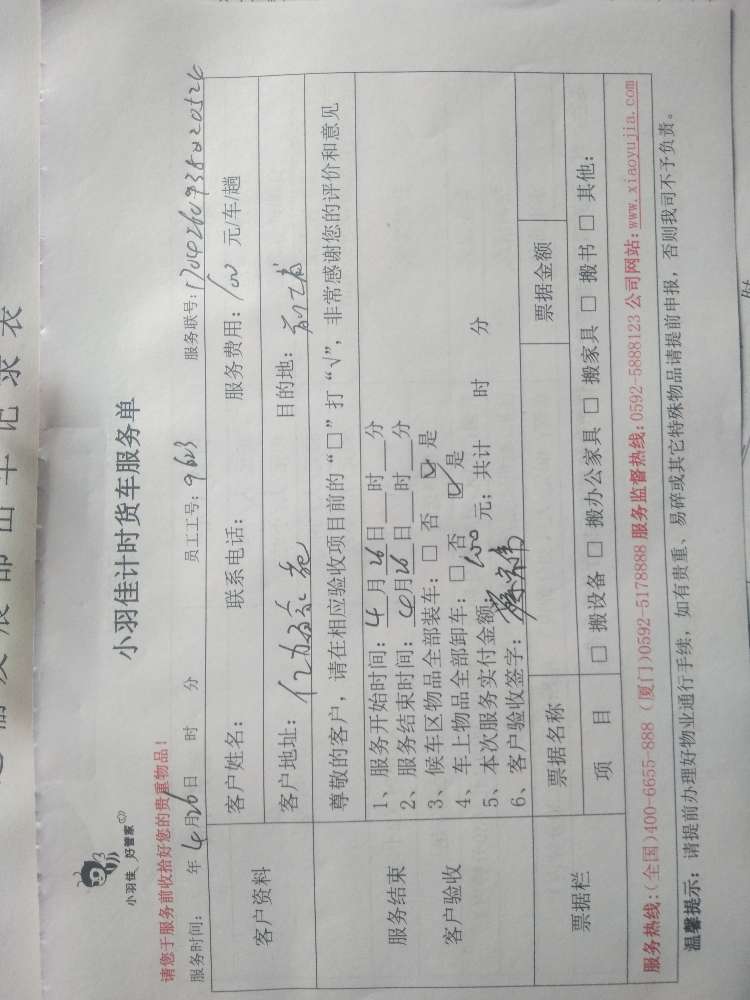 小羽佳 好管家
小羽佳计时货车服务单
请您于服务前收拾好您的贵重物品！
服务时间： 年 4月26日 时 分 员工工号：9623 服务联号：
客户资料
客户姓名： 联系电话： 服务费用：100 元/车/趟
客户地址： 目的地：
服务结束
客户验收
尊敬的客户，请在相应验收项目前的“□”打“√”，非常感谢您的评价和意见
1、服务开始时间：4月26日__时__分
2、服务结束时间：4月26日__时__分
3、候车区物品全部装车：□ 否 ☑ 是
4、车上物品全部卸车：□ 否 ☑ 是
5、本次服务实付金额 100 元；共计 时 分
6、客户验收签字：
票据栏
票据名称 票据金额
项 目 □ 搬设备 □ 搬办公家具 □ 搬家具 □ 搬书 □ 其他：
服务热线：（全国）400-6655-888 （厦门）0592-5178888 服务监督热线：0592-5888123 公司网站：www.xiaoyujia.com
温馨提示：请提前办理好物业通行手续，如有贵重、易碎或其它特殊物品请提前申报，否则我司不予负责。